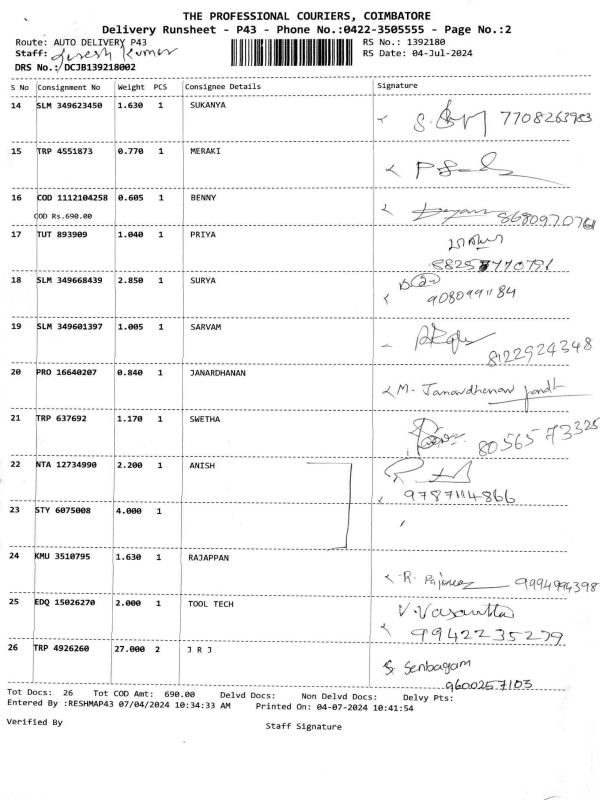 THE PROFESSIONAL COURIERS, COIMBATORE
Delivery Runsheet - P43 - Phone No.:0422-3505555 - Page No.:2
Route: AUTO DELIVERY P43 RS No.: 1392180
Staff: Suresh Kumar RS Date: 04-Jul-2024
DRS No.: DCJB139218002
S No Consignment No Weight PCS Consignee Details Signature
14 SLM 349623450 1.630 1 SUKANYA 7708263983
15 TRP 4551873 0.770 1 MERAKI
16 COD 1112104258 0.605 1 BENNY 8680970761
COD Rs.690.00
17 TUT 893909 1.040 1 PRIYA
18 SLM 349668439 2.850 1 SURYA
19 SLM 349601397 1.005 1 SARVAM 8122924348
20 PRO 16640207 0.840 1 JANARDHANAN M. Janardhanan
21 TRP 637692 1.170 1 SWETHA 8056573325
22 NTA 12734990 2.200 1 ANISH
9787114866
23 STY 6075008 4.000 1
24 KMU 3510795 1.630 1 RAJAPPAN R. 9994994398
25 EDQ 15026270 2.000 1 TOOL TECH V. Vasantha
99422 35279
26 TRP 4926260 27.000 2 J R J S. Senbagam
9600257103
Tot Docs: 26 Tot COD Amt: 690.00 Delvd Docs: Non Delvd Docs: Delvy Pts:
Entered By :RESHMAP43 07/04/2024 10:34:33 AM Printed On: 04-07-2024 10:41:54
Verified By Staff Signature